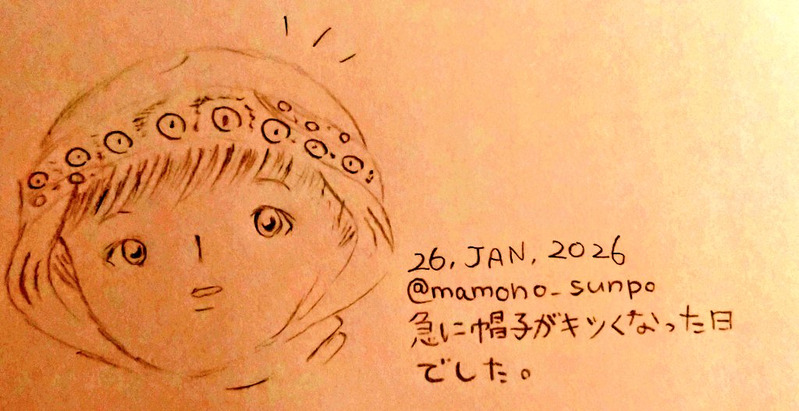 26, JAN, 2026
@mamono_sunpo
急に帽子がキツくなった日
でした。